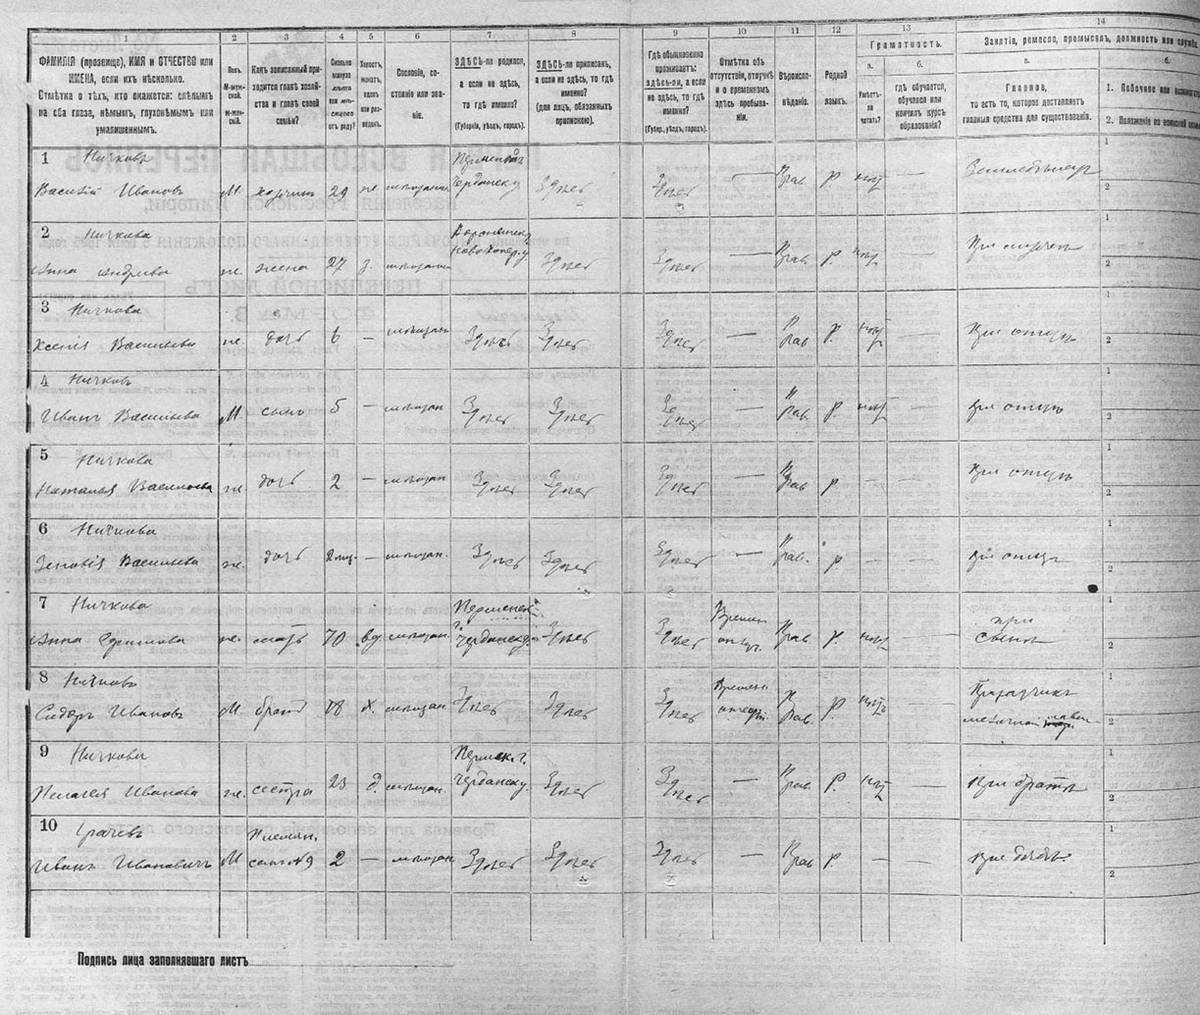 1
2
3
4
5
6
7
8
9
10
11
12
13
14
ФАМИЛІЯ (прозвище), ИМЯ и ОТЧЕСТВО или
ИМЕНА, если ихъ нѣсколько.
Отмѣтка о тѣхъ, кто окажется: слѣпымъ
на оба глаза, нѣмымъ, глухонѣмымъ или
умалишеннымъ.
Полъ.
М-муж-
ской.
ж-жен-
скій.
Какъ записанный при-
ходится главѣ хозяй-
ства и главѣ своей
семьи?
Сколько
минуло
лѣтъ
или мѣ-
сяцевъ
отъ роду?
Холостъ,
женатъ,
вдовъ
или раз-
веденъ.
Сословіе, со-
стояніе или зва-
ніе.
ЗДѢСЬ-ли родился,
а если не здѣсь,
то гдѣ именно?
(Губернія, уѣздъ, городъ).
ЗДѢСЬ-ли приписанъ,
а если не здѣсь, то гдѣ
именно?
(для лицъ, обязанныхъ
припискою).
Гдѣ обыкновенно
проживаетъ:
здѣсь-ли, а если
не здѣсь, то гдѣ
именно?
(Губер., уѣздъ, городъ).
Отмѣтка объ
отсутствіи, отлучкѣ
и о временномъ
здѣсь пребыва-
ніи.
Вѣроиспо-
вѣданіе.
Родной
языкъ.
Грамотность.
а.
Умѣетъ-
ли
читать?
б.
гдѣ обучается,
обучался или
кончилъ курсъ
образованія?
Занятіе, ремесло, промыселъ, должность или служба.
а.
Главное,
то есть то, которое доставляетъ
главныя средства для существованія.
б.
1. Побочное или
2. Положеніе по воинской
1 Ничковъ
Василій Ивановъ М хозяинъ 29 же Пермской Чердынск у. Здѣсь Здѣсь — Прав Р. нѣтъ — Земледѣлецъ
2 Ничкова
Анна Андреева ж. жена 27 з. Воронежск Новохопер у Здѣсь Здѣсь — Прав Р. нѣт — При мужѣ
3 Ничкова
Ксенія Васильева ж. дочь 6 — Здѣсь Здѣсь Здѣсь — Прав Р. нѣт — при отцѣ
4 Ничковъ
Иванъ Васильевъ М сынъ 5 — Здѣсь Здѣсь Здѣсь — Прав. Р. нѣт — при отцѣ
5 Ничкова
Наталья Васильева ж. дочь 2 — Здѣсь Здѣсь Здѣсь — Прав Р — — При отцѣ
6 Ничкова
Зеновія Васильева ж. дочь 2 мѣ. — Здѣсь Здѣсь Здѣсь — Прав. Р — — при отцѣ
7 Ничкова
Анна Ефимова ж. мать 70 вд. Пермской Чердынск у. Здѣсь Здѣсь Времен. отлуч. Прав Р. нѣт — при сынѣ
8 Ничковъ
Сидоръ Ивановъ М братъ 18 х. Здѣсь Здѣсь Здѣсь Времен. отлуч. Прав. Р. нѣтъ — Приказчикъ мелочной лавки
9 Ничкова
Пелагея Иванова ж. сестра 23 д. Пермск. г. Чердынск у. Здѣсь Здѣсь — Прав. Р. нѣт — при братѣ
10 Грачевъ
Иванъ Ивановичъ М Племян. 2 — Здѣсь Здѣсь Здѣсь — Прав Р. — при бабкѣ
Подпись лица заполнявшаго листъ